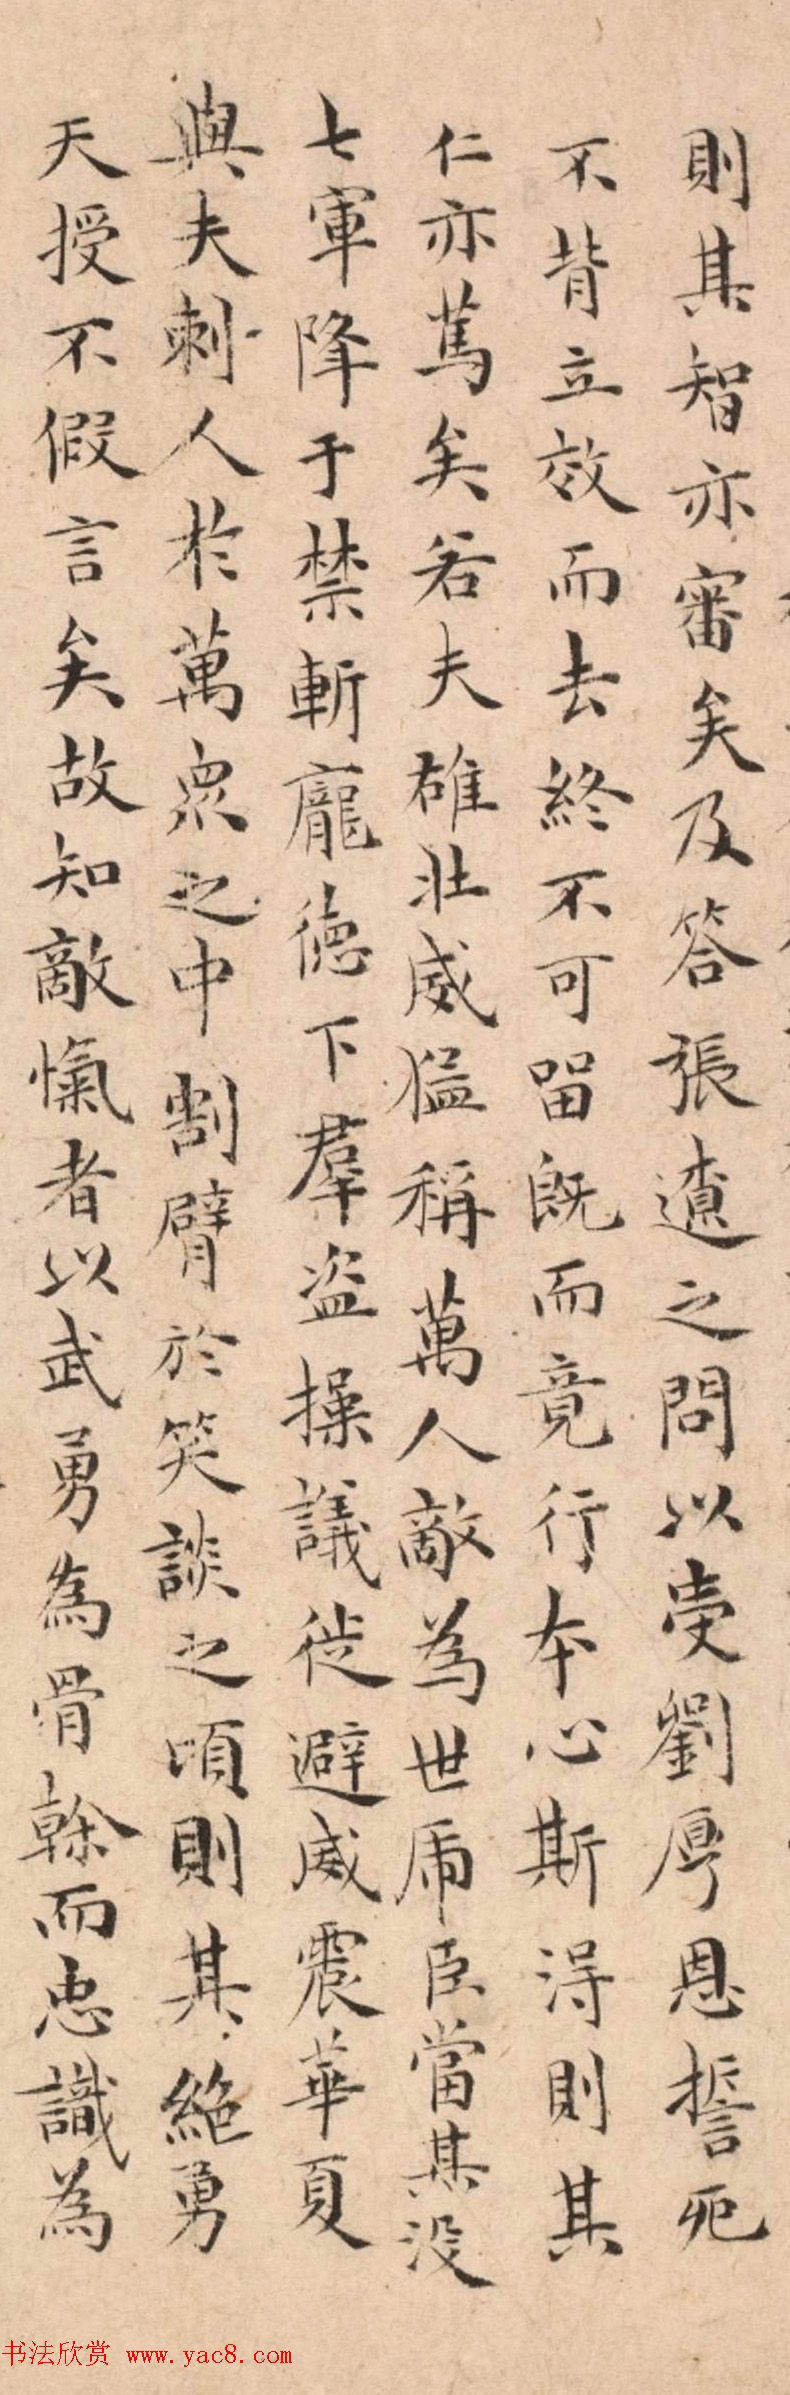 則其智亦審矣及答張遼之問以受劉厚恩誓死
不背立效而去終不可留既而竟行本心斯得則其
仁亦篤矣若夫雄壯威猛稱萬人敵為世虎臣當其沒
七軍降于禁斬龐德下羣盜操議徙避威震華夏
與夫刺人於萬眾之中割臂於笑談之頃則其絕勇
天授不假言矣故知敵愾者以武勇為骨幹而忠識為
书法欣赏 www.yac8.com